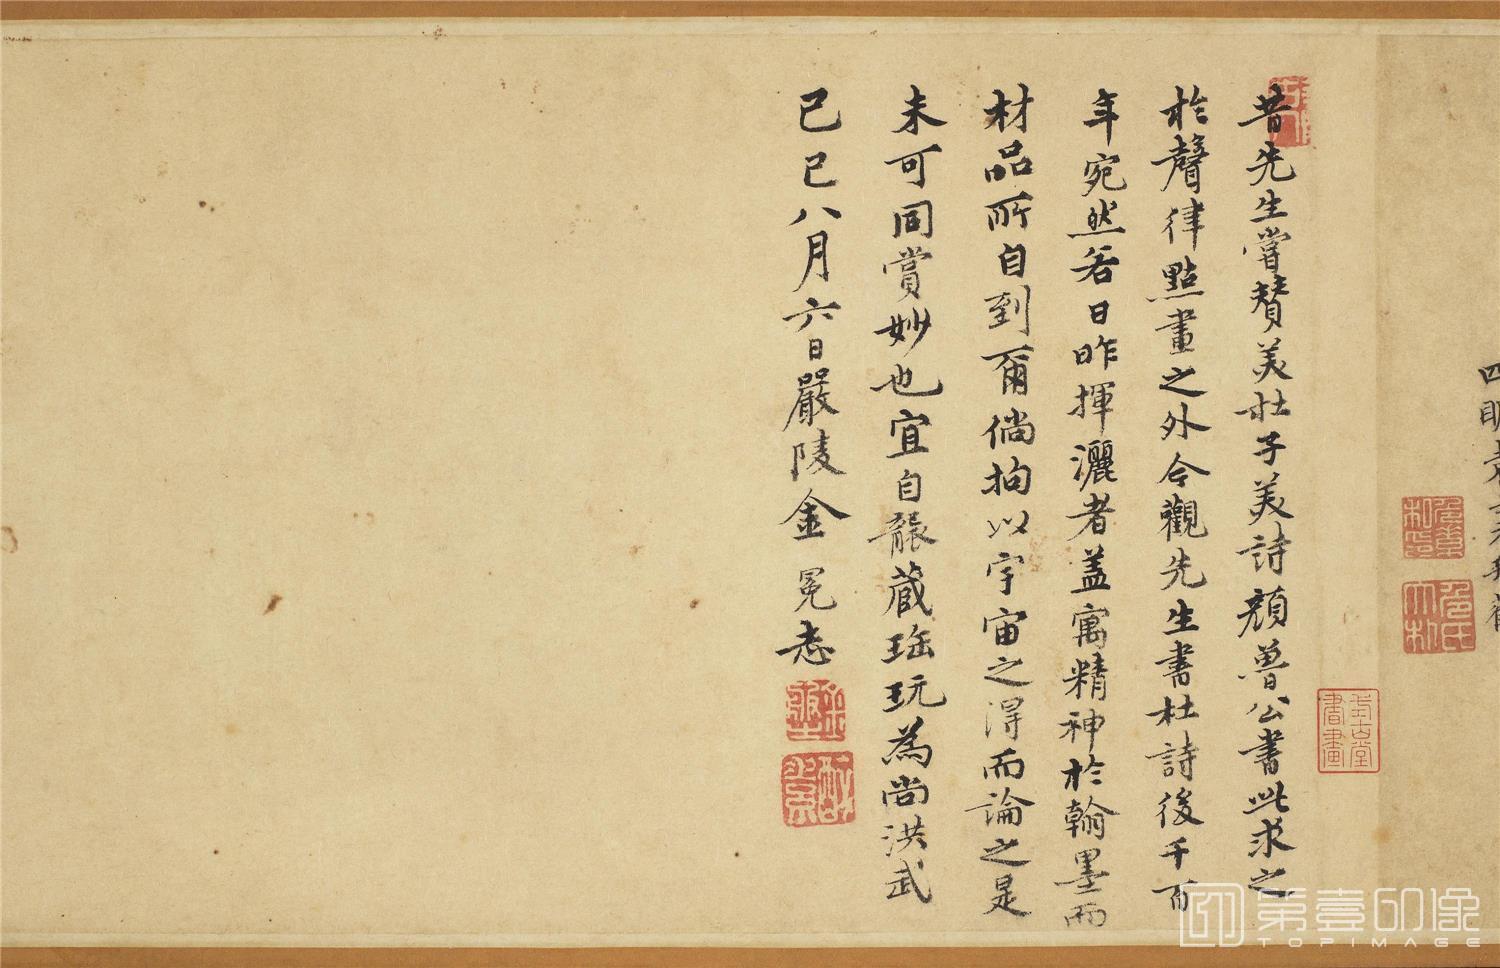 昔先生嘗贊美杜子美詩顏魯公書此求之
於聲律點畫之外今觀先生書杜詩後千百
年宛然若日昨揮灑者蓋寓精神於翰墨而
材品所自到爾倘拘以宇宙之得而論之是
未可同賞妙也宜自韞藏珤玩為尚洪武
己巳八月六日嚴陵金冕志
式古堂書畫
第壹印像
TOPIMAGE